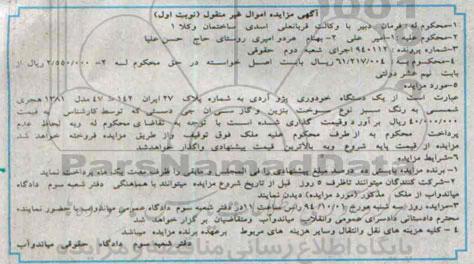 آگهی مزایده اموال غیر منقول (نوبت اول)
۱-محکوم له : فرمان دبیر با وکالت قربانعلی اسدی ساختمان وکلا ۱
۲-محکوم علیه : ۱-امیر علی ۲- بهنام هردو امیری روستای حاج حسن علیا
۳-شماره پرونده : ۹۴۰۱۱۲ اجرای شعبه دوم حقوقی
۴-محکوم به : ۶۱/۲۱۷/۰۰۴ ریال بابت اصل خواسته در حق محکوم له ۲- ۲/۵۵۰/۰۰۰ ریال از
بابت نیم عشر دولتی
۵-مورد مزایده
عبارت است از یک دستگاه خودوری پژو آردی به شماره پلاک ۲۷ ایران ۱۴۲ ط ۴۷ مدل ۱۳۸۱ هجری
شمسی به رنگ سبز نوع سوخت بنزین و گاز سی ان جی دستی که توسط کارشناس به قیمت
۴۰/۰۰۰/۰۰۰ ریال برآورد و قیمت گذاری شده است با توجه به تقاضای محکوم له و به لحاظ عدم
پرداخت محکوم به از طرف محکوم علیه ملک فوق توقیف و از طریق مزایده فروخته خواهد شد
مزایده از قیمت پایه شروع و به بالاترین قیمت پیشنهادی واگذار خواهد شد
۶-شرایط مزایده
۱- برنده مزایده بایستی ده درصد مبلغ پیشنهادی را فی المجلس و مابقی را ظرف مهلت یک ماه پرداخت نماید
۲-شرکت کنندگان میتوانند تا ظرف ۵ روز قبل از تاریخ شروع مزایده میتوانند با هماهنگی دفتر شعبه سوم دادگاه
میاندواب از ملک مذکور (مورد مزایده) دیدن نمایند
۳-مزایده روز سه شنبه مورخ ۹۴/۱۰/۰۱ راس ساعت ۱۱ در دفتر شعبه سوم دادگاه عمومی میاندواب با حضور نماینده
محترم دادستانی دادسرای عمومی وانقلاب میاندوآب ومتقاضیان برگزار خواهد شد
۴- کلیه هزینه های نقل وانتقال وسایر هزینه های مربوط برعهده برنده مزایده میباشد
دفتر شعبه سوم دادگاه حقوقی میاندوآب
ParsNamadData
پایگاه اطلاع رسانی مناقصات و مزایده